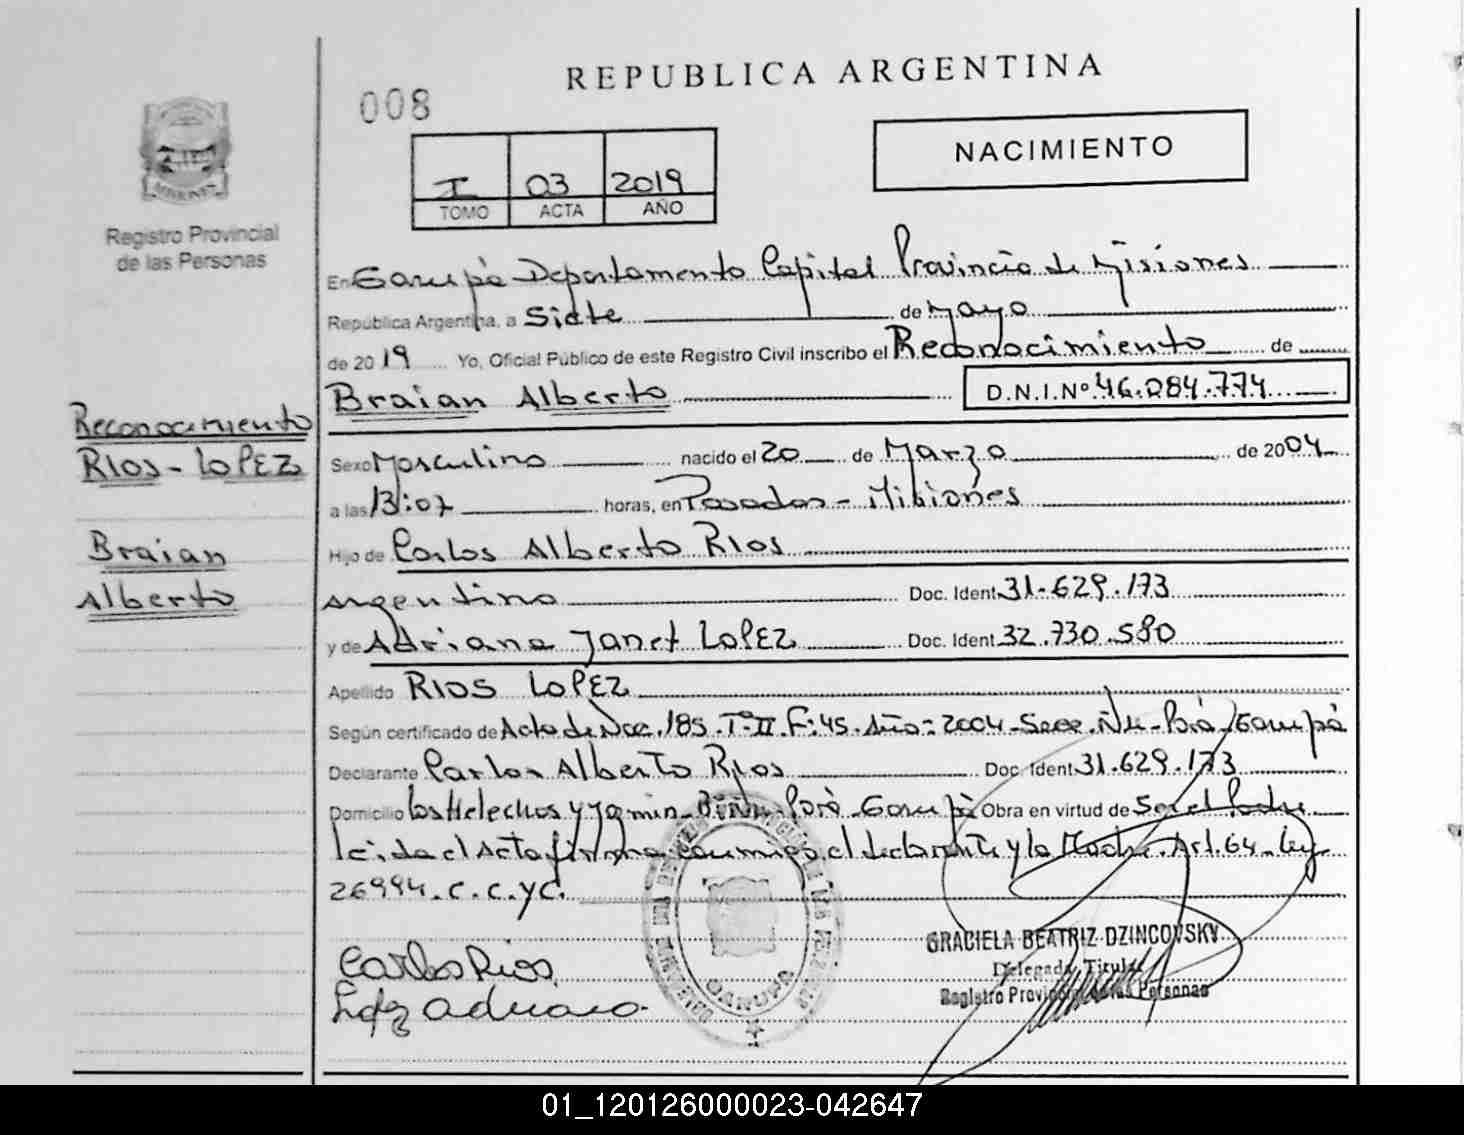 REPUBLICA ARGENTINA
008
NACIMIENTO
I 03 2019
TOMO ACTA AÑO
MISIONES
Registro Provincial
de las Personas
En Garupá Departamento Capital Provincia de Misiones
República Argentina, a Siete de Mayo
de 2019 Yo, Oficial Público de este Registro Civil inscribo el Reconocimiento de
Braian Alberto D.N.I.Nº 46.284.774
Reconocimiento
RIOS - LOPEZ
Braian
Alberto
Sexo Masculino nacido el 20 de Marzo de 2004
a las 13:07 horas, en Posadas - Misiones
Hijo de Carlos Alberto RIOS
Argentino Doc. Ident. 31.629.173
y de Adriana Janet LOPEZ Doc. Ident. 32.730.580
Apellido RIOS LOPEZ
Según certificado de Acta de Nac. 185. Tº II. F: 45. Año: 2004 - Secc. Ñu - Porá / Garupá
Declarante Carlos Alberto Rios Doc. Ident. 31.629.173
Domicilio los Helechos y Jazmin Porá - Garupá Obra en virtud de Ser el Padre
leida el Acta firma conmigo el declarante y la Madre. Art. 64 - Ley
26994. C. C. y C.
Carlos Rios
GRACIELA BEATRIZ DZINCOVSKY
Delegada Titular
Registro Provincial de las Personas
GARUPA
01_120126000023-042647